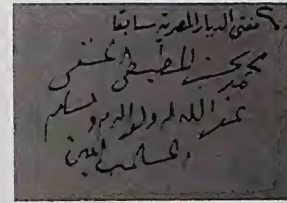 مفتى الديار المصرية سابقا
محمد بخيت المطيعى الحنفى
غفر الله له ولوالديه و
المسلمين امين